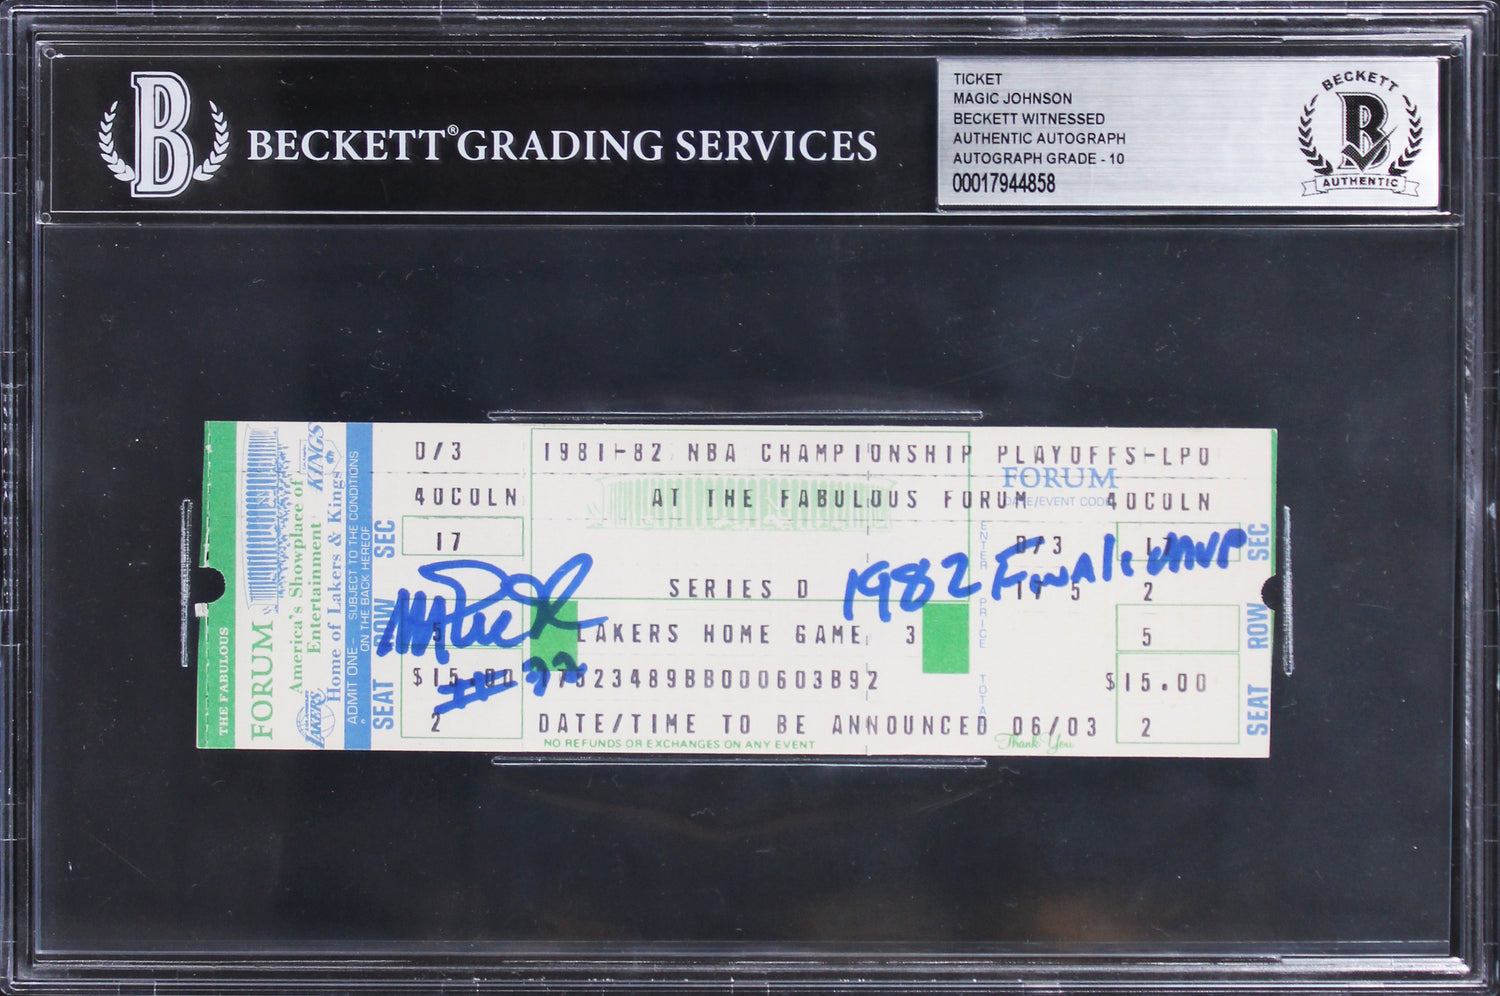 BECKETT® GRADING SERVICES
B
TICKET
MAGIC JOHNSON
BECKETT WITNESSED
AUTHENTIC AUTOGRAPH
AUTOGRAPH GRADE - 10
00017944858
BECKETT
B
AUTHENTIC
THE FABULOUS
FORUM
America's Showplace of
Entertainment
Home of Lakers & Kings
LAKERS
KINGS
ADMIT ONE - SUBJECT TO THE CONDITIONS
ON THE BACK HEREOF
SEAT ROW SEC
D/3
4OCOLN
17
5
$15.00
2
1981-82 NBA CHAMPIONSHIP PLAYOFFS-LPO
FORUM
AT THE FABULOUS FORUM
DATE/EVENT CODE
4OCOLN
SERIES D
LAKERS HOME GAME 3
17523489BB000603B92
DATE/TIME TO BE ANNOUNCED 06/03
NO REFUNDS OR EXCHANGES ON ANY EVENT
Thank You
ENTER PRICE TOTAL
D/3
17 5
17
2
5
$15.00
2
SEAT ROW SEC
#32
1982 Finals MVP